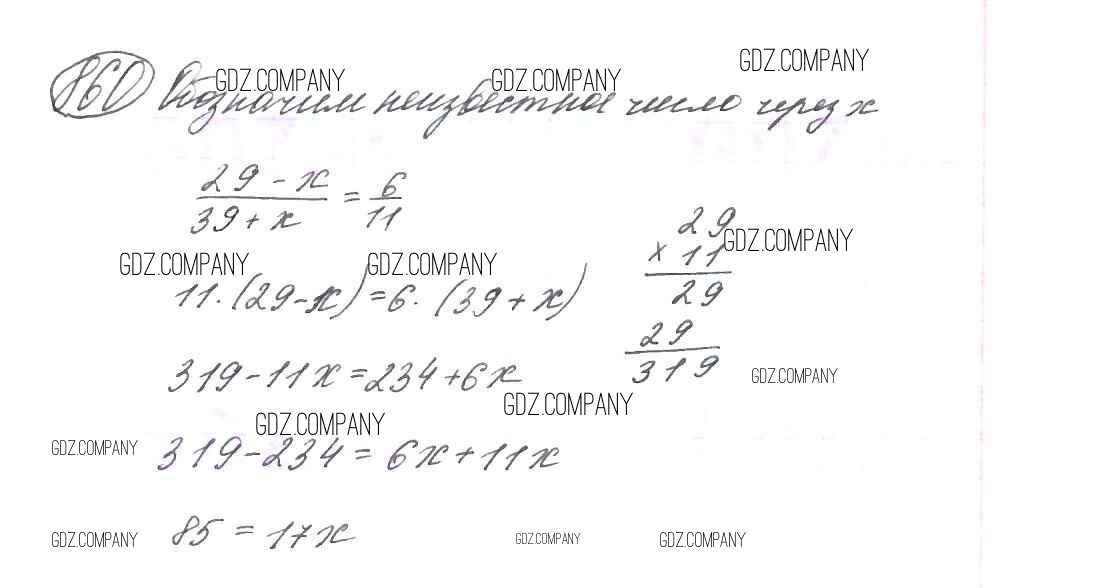 GDZ.COMPANY
GDZ.COMPANY GDZ.COMPANY
860 Обозначим неизвестное число через x
29 - x / 39 + x = 6 / 11
29
× 11
29
29
319
GDZ.COMPANY
GDZ.COMPANY GDZ.COMPANY
11·(29-x)=6·(39+x)
319-11x=234+6x
GDZ.COMPANY
GDZ.COMPANY
GDZ.COMPANY
GDZ.COMPANY
319-234=6x+11x
85=17x
GDZ.COMPANY GDZ.COMPANY GDZ.COMPANY